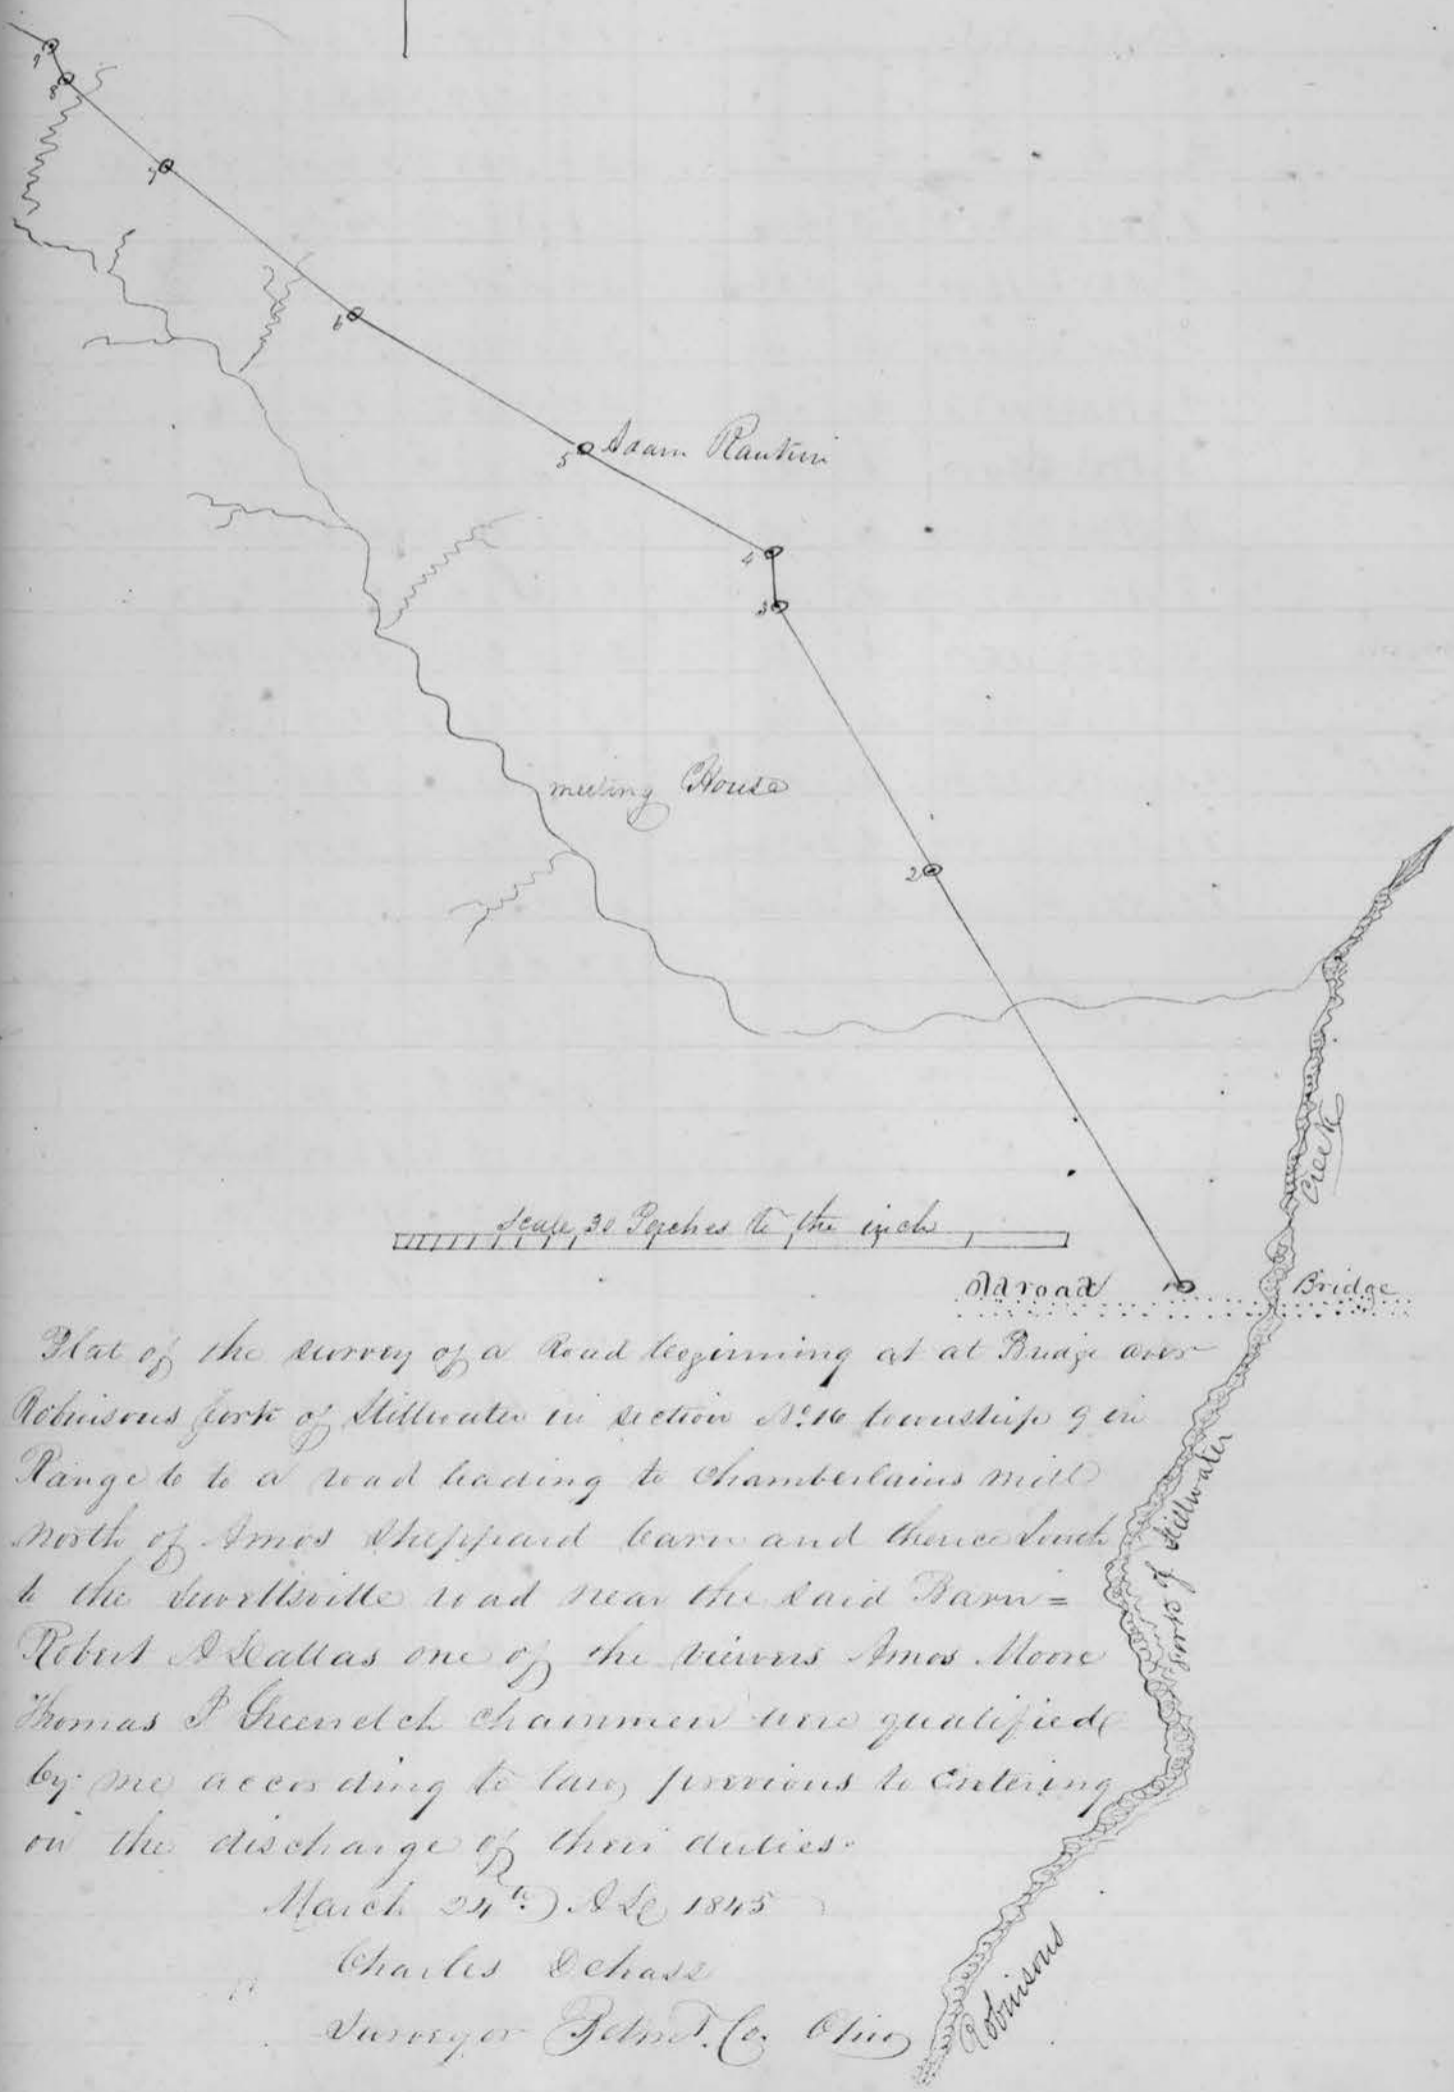 9
8
7
6
5 Adam Rankin
4
3
meeting House
2
Creek
Scale, 30 Perches to the inch
Old road 1 Bridge
Plat of the survey of a Road beginning at at Bridge over
Robinsons fork of Stillwater in section No. 16 township 9 in
Range 6 to a road leading to Chamberlains mill
north of Amos Sheppard barn and thence South
to the Sewellsville road near the said Barn =
Robert A Dallas one of the viewers Amos Moore
Thomas P chainmen were qualified
by me according to law, previous to entering
on the discharge of their duties.
March 24th. A D 1845
Charles Dehass
Surveyor Belmt. Co. Ohio
Robinsons fork of Stillwater